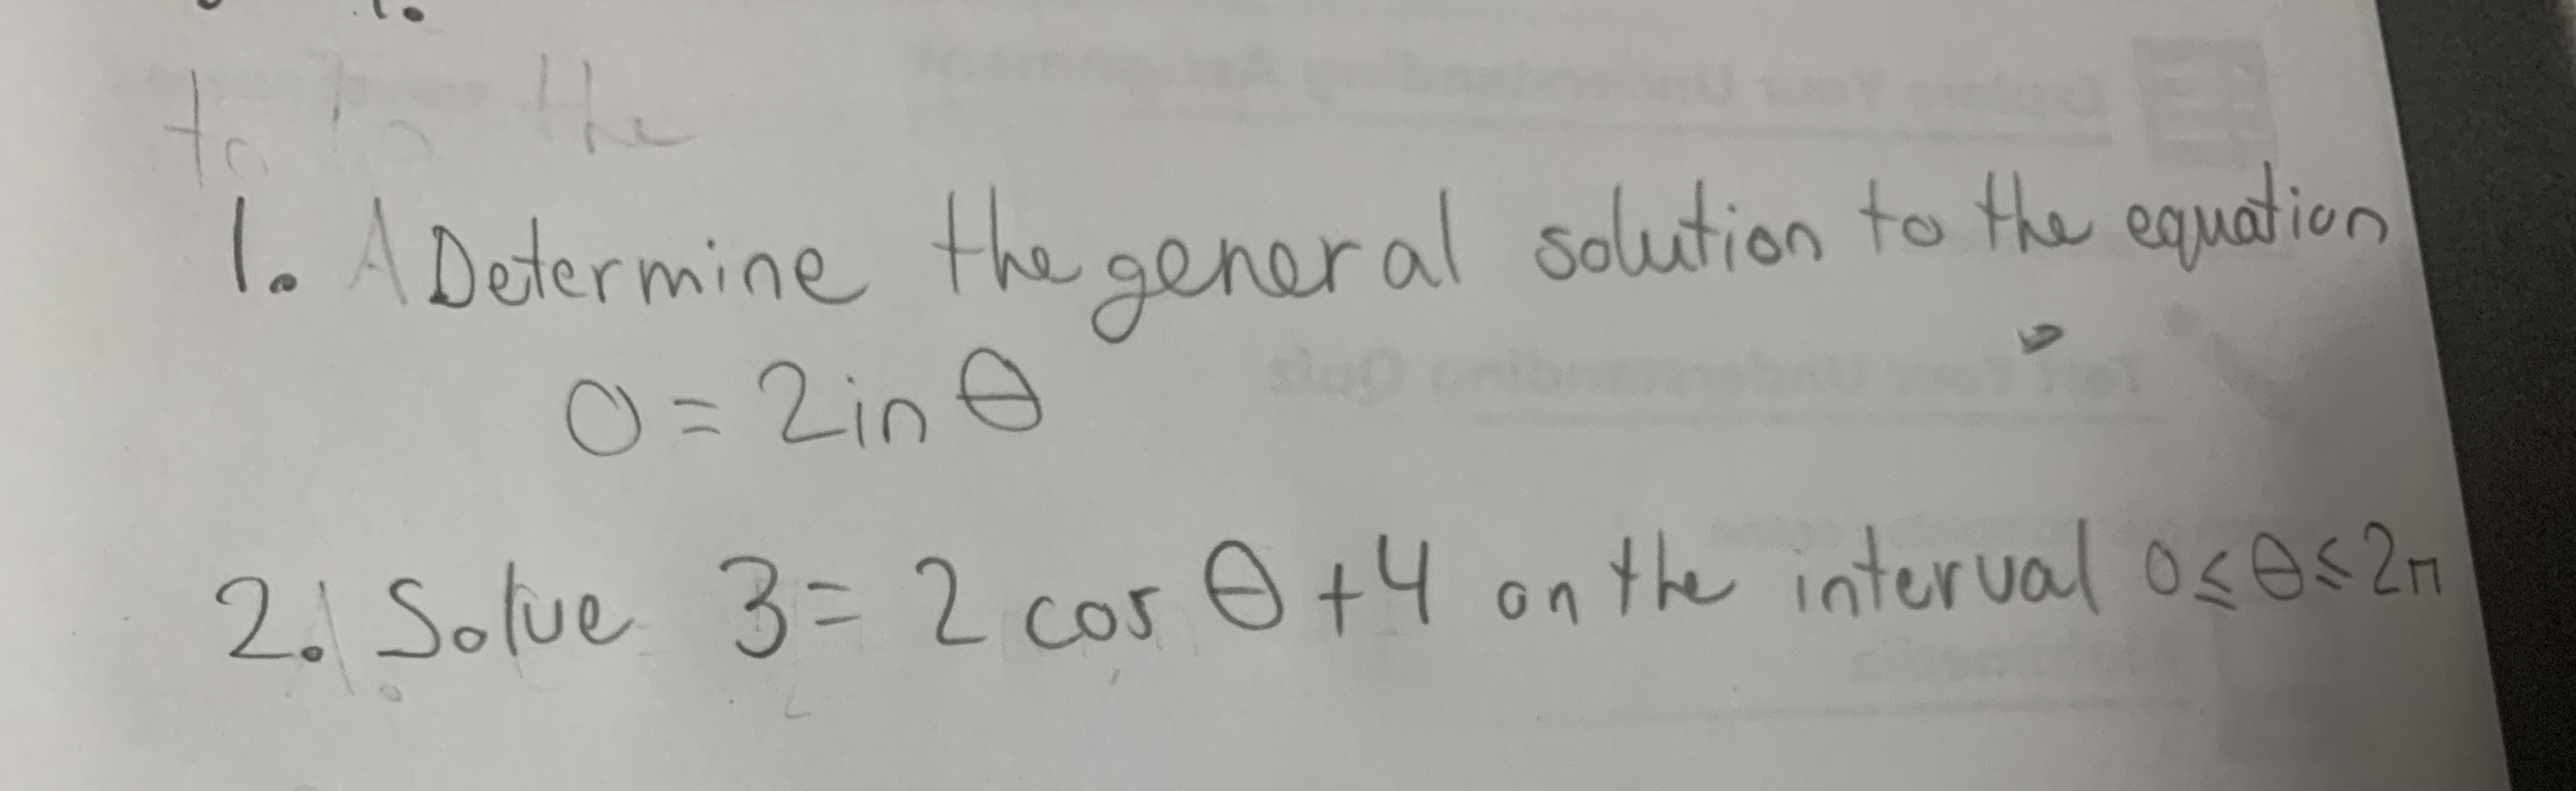 to To the
1. A Determine the general solution to the equation
0 = 2in θ
2. Solve 3 = 2 cos θ + 4 on the interval 0 ≤ θ ≤ 2π